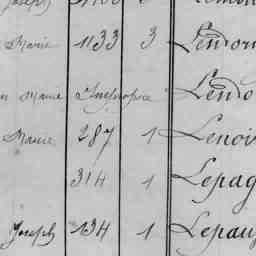 Joseph
Marie 1133 3 Lemoi
Marie Impropre Lemo
Marie 287 1 Lenoi
314 1 Lepag
Joseph 134 1 Lepau